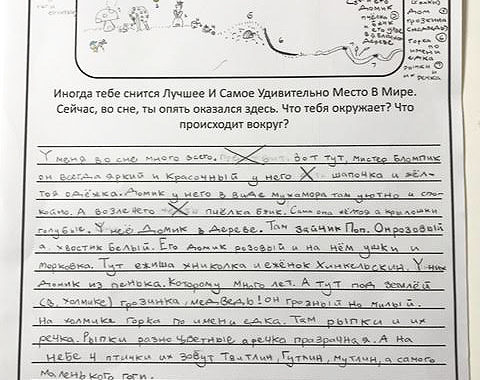 домик
пчёлка
в дереве
дом
грозинка
горка
по
имени
едка
рыпки
и их
речка
6
6
7
Иногда тебе снится Лучшее И Самое Удивительно Место В Мире.
Сейчас, во сне, ты опять оказался здесь. Что тебя окружает? Что
происходит вокруг?
У меня во сне много всего. Вот тут, мистер Бломпик
он всегда яркий и красочный у него шапочка и жёл-
тоя одёжка. Домик у него в виде мухомора там уютно и спо-
койно. А возле него пчёлка Бзик. Сама она жёлтая а крылошки
голубые. У неё домик в дереве. Там зайник Поп. Он розовый
а хвостик белый. Его домик розовый и на нём ушки и
морковка. Тут ежиша хниколка и ежёнок Хинкельскин. У них
домик из пенока. Которому много лет. А тут под землёй
(в. холмике) грозинка, медведь! он грозный но милый.
На холмике горка по имени едка. Там рыпки и их
речка. Рыпки разно цветные а речка прозрачная. А на
небе 4 птички их зовут Твитлин, Гутлин, мутлин, а самого
маленького гоги.